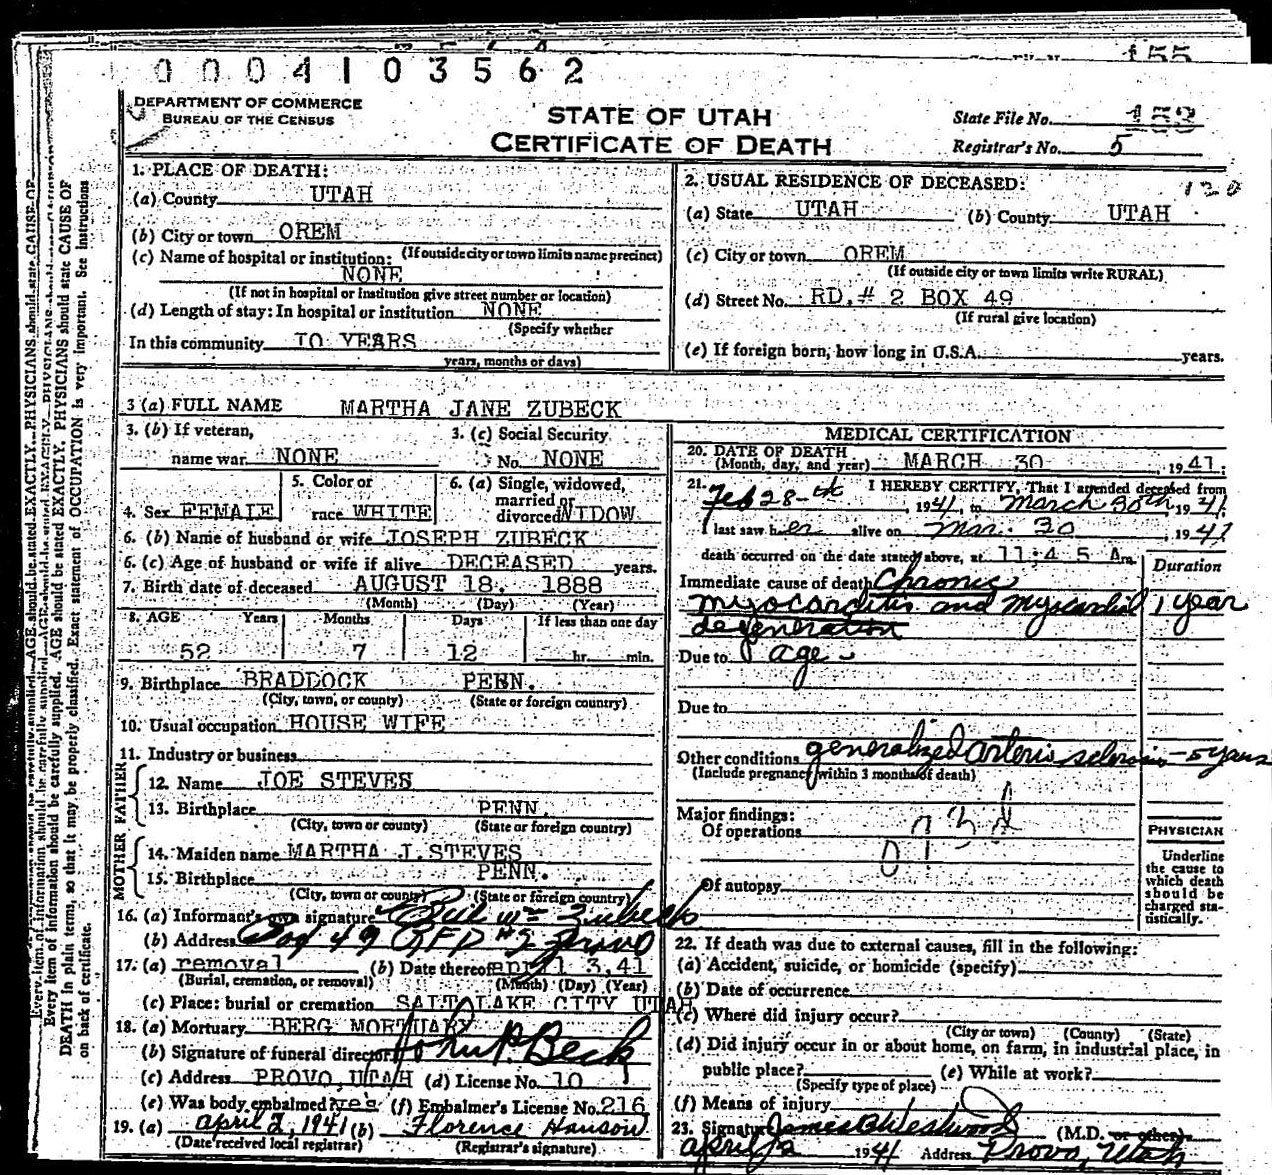 0 0 0 4 1 0 3 5 6 2
155
DEPARTMENT OF COMMERCE
BUREAU OF THE CENSUS
STATE OF UTAH
CERTIFICATE OF DEATH
State File No. 153
Registrar's No. 5
1. PLACE OF DEATH:
(a) County UTAH
(b) City or town OREM
(If outside city or town limits name precinct)
(c) Name of hospital or institution:
NONE
(If not in hospital or institution give street number or location)
(d) Length of stay: In hospital or institution NONE
(Specify whether
In this community IO YEARS
years, months or days)
2. USUAL RESIDENCE OF DECEASED:
120
(a) State UTAH (b) County UTAH
(c) City or town OREM
(If outside city or town limits write RURAL)
(d) Street No. RD.# 2 BOX 49
(If rural give location)
(e) If foreign born, how long in U.S.A. years.
3 (a) FULL NAME MARTHA JANE ZUBECK
3. (b) If veteran,
name war NONE
3. (c) Social Security
No. NONE
4. Sex FEMALE
5. Color or
race WHITE
6. (a) Single, widowed,
married or
divorced WIDOW
6. (b) Name of husband or wife JOSEPH ZUBECK
6. (c) Age of husband or wife if alive DECEASED years.
7. Birth date of deceased AUGUST 18, 1888
(Month) (Day) (Year)
8. AGE Years Months Days If less than one day
52 7 12 hr. min.
9. Birthplace BRADDOCK PENN.
(City, town, or county) (State or foreign country)
10. Usual occupation HOUSE WIFE
11. Industry or business
FATHER
12. Name JOE STEVES
13. Birthplace PENN.
(City, town or county) (State or foreign country)
MOTHER
14. Maiden name MARTHA J. STEVES
15. Birthplace PENN.
(City, town or county) (State or foreign country)
16. (a) Informant's own signature Wm Zubeck
(b) Address Box 49 RFD #2 Provo
17. (a) removal (b) Date thereof april 3,41
(Burial, cremation, or removal) (Month) (Day) (Year)
(c) Place: burial or cremation SALT LAKE CITY UTAH
18. (a) Mortuary BERG MORTUARY
(b) Signature of funeral director John P. Beck
(c) Address PROVO, UTAH (d) License No. 10
(e) Was body embalmed? yes (f) Embalmer's License No. 216
19. (a) april 2, 1941 (b) Florence Hanson
(Date received local registrar) (Registrar's signature)
MEDICAL CERTIFICATION
20. DATE OF DEATH
(Month, day, and year) MARCH 30 , 1941;
21. I HEREBY CERTIFY, That I attended deceased from
Feb 28-th , 1941, to March 30th 1941;
I last saw her alive on Mar. 30 , 1941
death occurred on the date stated above, at 11:45 Am.
Duration
Immediate cause of death Chronic
myocarditis and myocardial 1 year
degeneration
Due to age
Due to
Other conditions generalized arterio sclerosis - 5 years
(Include pregnancy within 3 months of death)
Major findings:
Of operations
Of autopsy
PHYSICIAN
Underline
the cause to
which death
should be
charged sta-
tistically.
22. If death was due to external causes, fill in the following:
(a) Accident, suicide, or homicide (specify)
(b) Date of occurrence
(c) Where did injury occur?
(City or town) (County) (State)
(d) Did injury occur in or about home, on farm, in industrial place, in
public place? (e) While at work?
(Specify type of place)
(f) Means of injury
23. Signature James G Westwood (M.D. or other)
april 2 1941 Address Provo, Utah
Every item of information should be carefully supplied. AGE should be stated EXACTLY. PHYSICIANS should state CAUSE OF
DEATH in plain terms, so that it may be properly classified. Exact statement of OCCUPATION is very important. See instructions
on back of certificate.